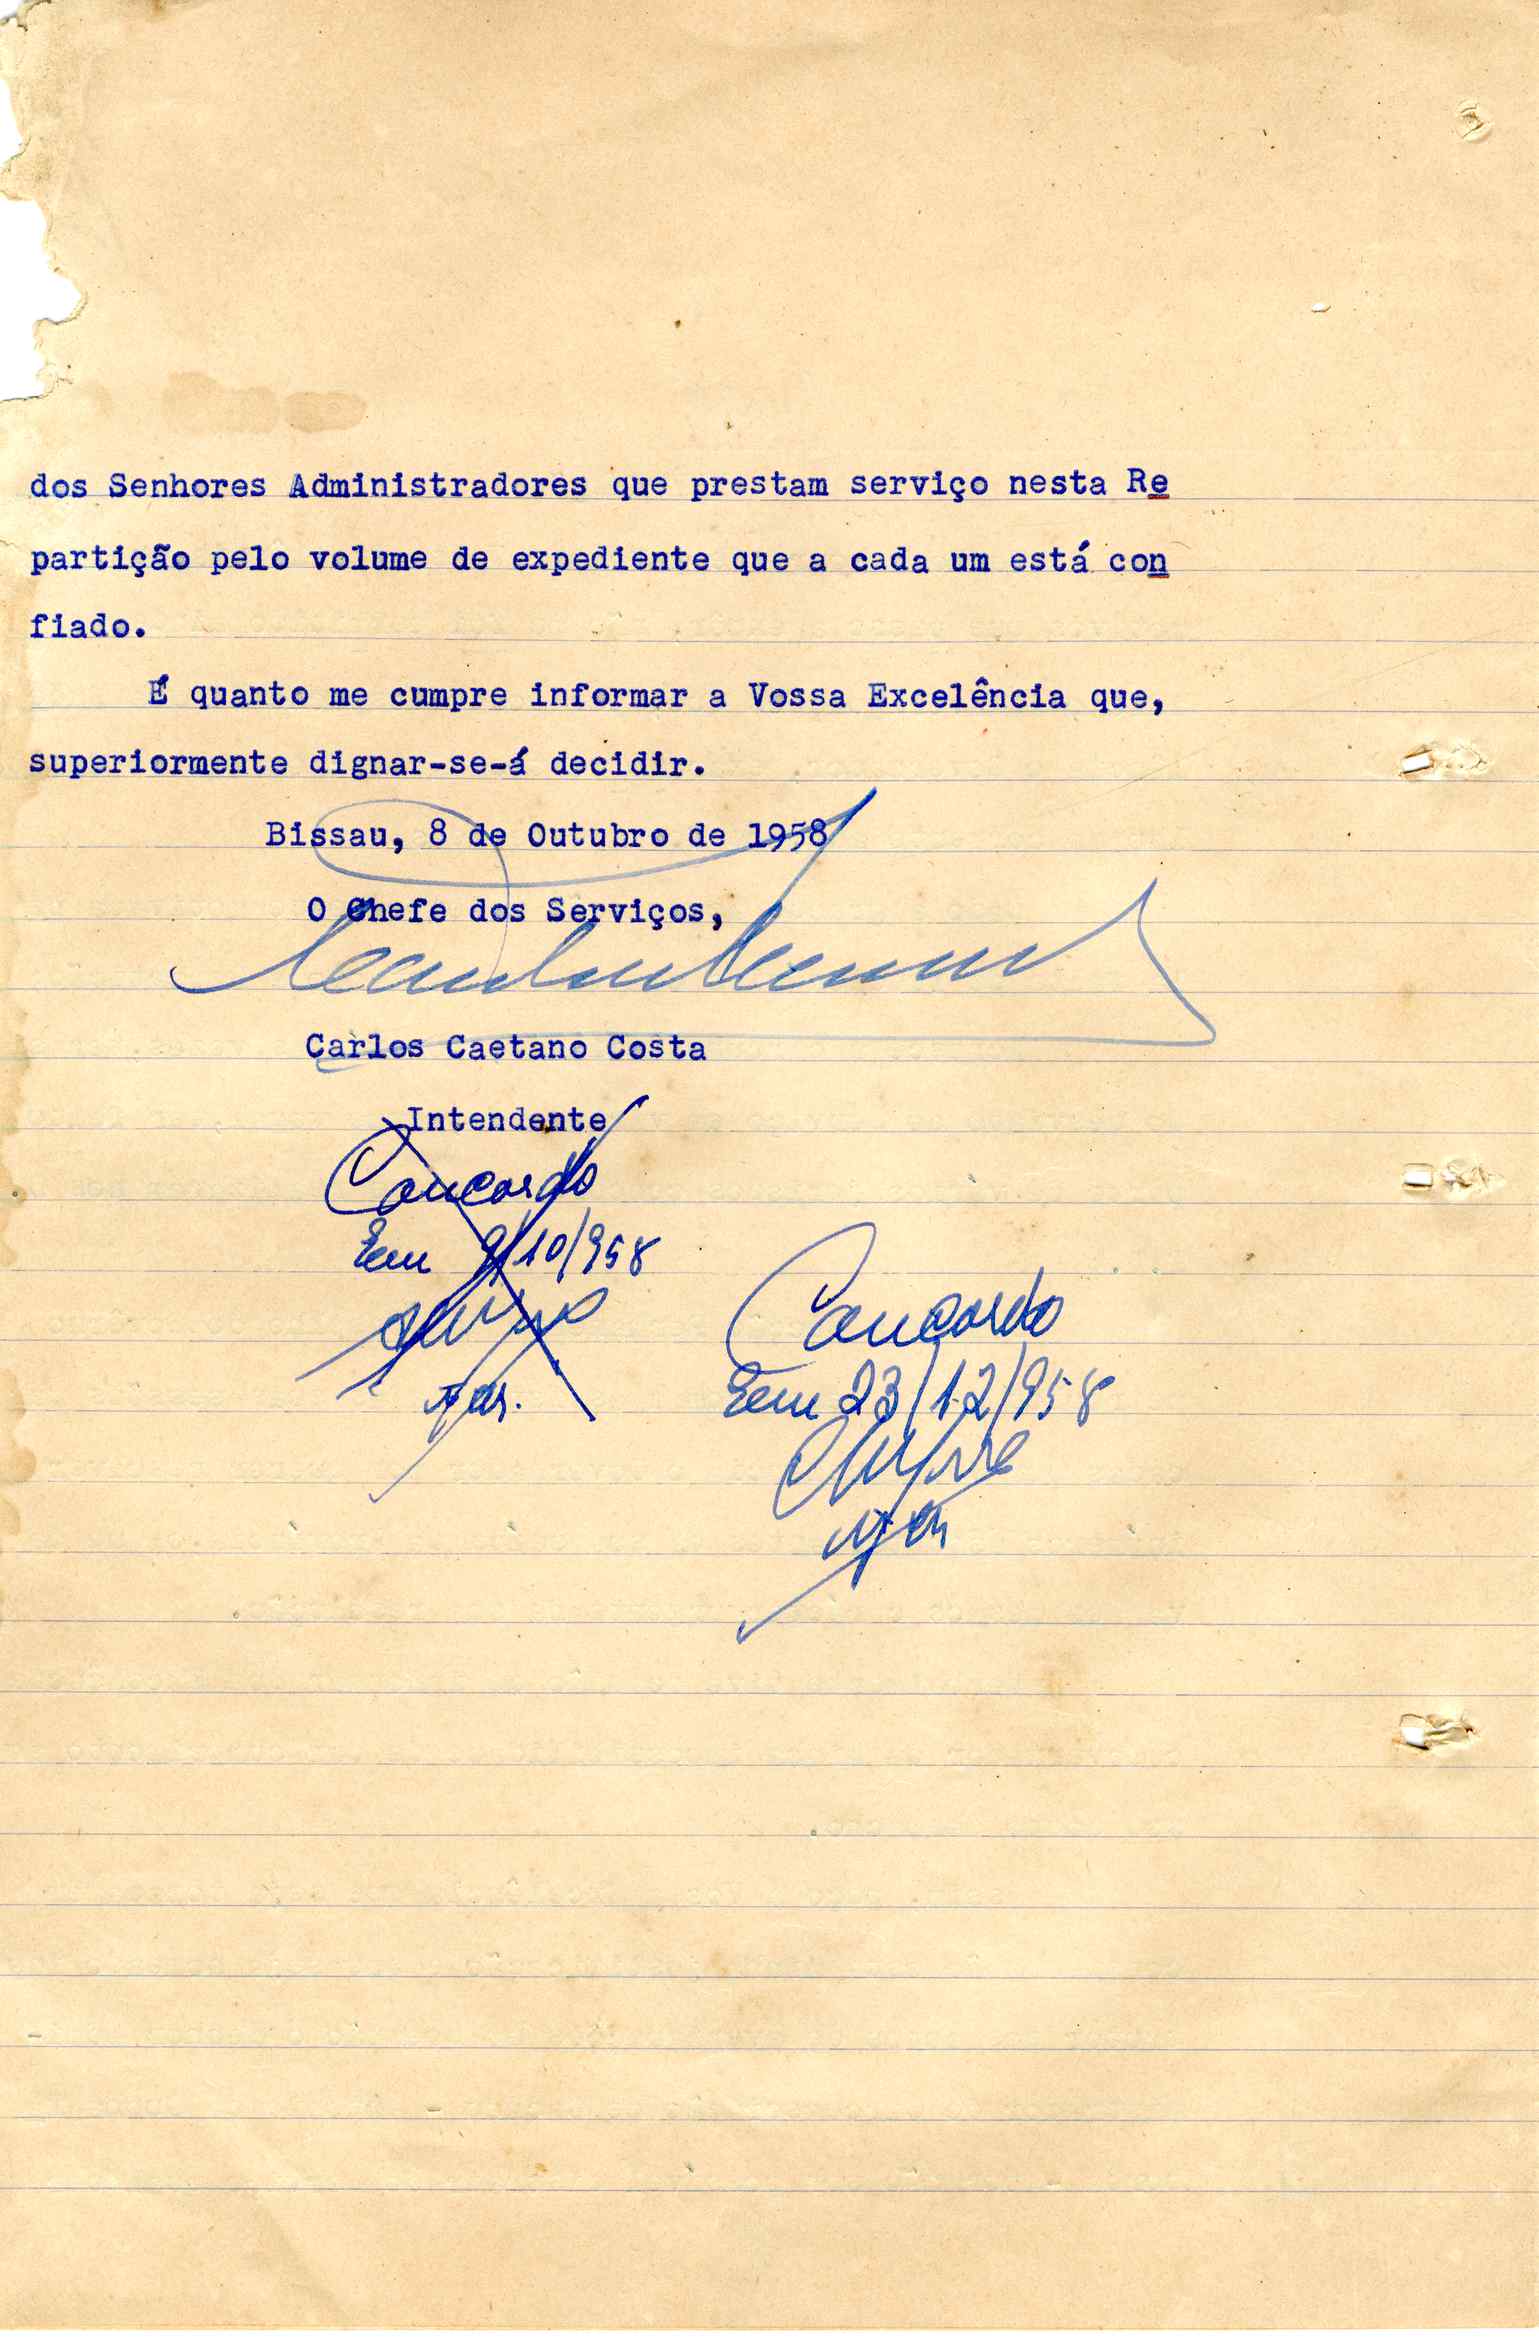 dos Senhores Administradores que prestam serviço nesta Re
partição pelo volume de expediente que a cada um está con
fiado.
É quanto me cumpre informar a Vossa Excelência que,
superiormente dignar-se-á decidir.
Bissau, 8 de Outubro de 1958
O Chefe dos Serviços,
Carlos Caetano Costa
Intendente
Concordo
Em 9/10/958
Concordo
Em 23/12/958